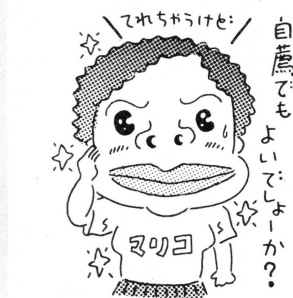 てれちゃうけど…
自薦でも
よいでしょーか?
マリコ